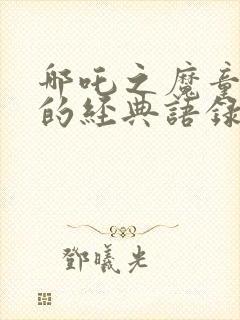 哪吒之魔童
的經典語錄
鄧曦光